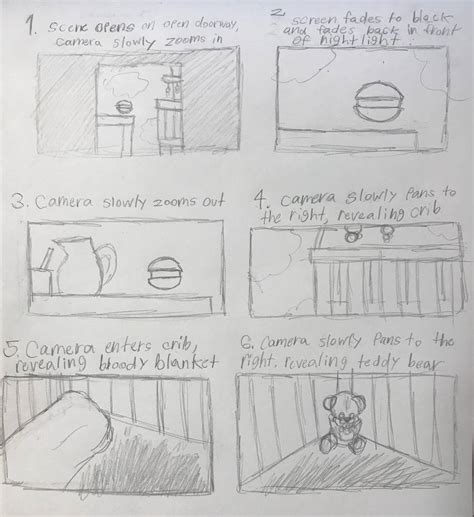 1. Scene opens on open doorway,
camera slowly zooms in
2. screen fades to black
and fades back in front
of nightlight.
3. Camera slowly zooms out
4. Camera slowly Pans to
the right, revealing crib
5. Camera enters crib,
revealing bloody blanket
6. Camera slowly Pans to the
right, revealing teddy bear